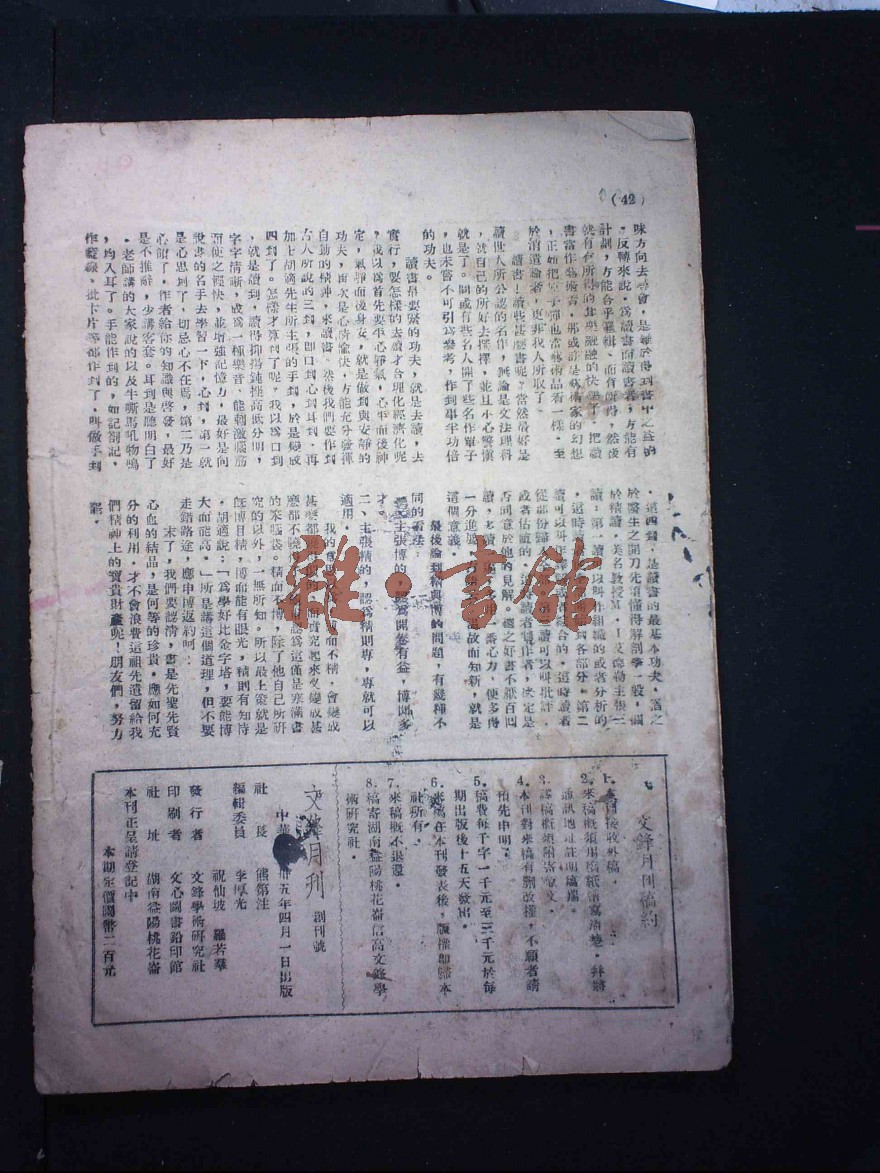 (42)
味方向去尋會，是難於得到書中之益的
。反轉來說，為讀書而讀書者，方能有
計劃，方能合乎邏輯，而有所得，然後
就有有所得的其樂融融的快樂了。把讀
書當作為讀書，那或許是藝術家的幻想
於消遣論者，更非我人所取了。
讀書！讀些甚麼書呢？當然最好是
讀世人所公認的名作，無論是文法理科
，就自己的所好去撰擇，並且小心警慎
就是了。間或有些名人開了些名作單子
，也未嘗不可引為參考，作到事半功倍
的功夫。
讀書最要緊的功夫，就是去讀，去
實行，要怎樣的去讀才合理化經濟化呢
？我以為首先要平心靜氣，心平而後神
定，氣靜而後身安，就是做到與安靜的
功夫，再次是心情愉快，方能充分發揮
自動的精神，來讀書。然後我們要作到
古人所說的三到，即口到心到耳到，再
加上胡適先生所主張的手到，於是變成
四到了。怎樣才算到了呢？我以為口到
，就是讀到，讀得抑揚鈍挫高低分明，
字字清晰，成為一種樂音，能刺激腦筋
而使之輕快，並增強記憶力，最好是向
說書的名手去學習一下，心到，第一就
是心思到了，切忌心不在焉，第二乃是
心領了，作者給你的知識與啓發，最好
是不推辭，少講客套。耳到是聽明白了
，老師講的大家說的以及牛嘶馬吼物鳴
，均入耳了。手能作到的，如記劄記，
作綴錄，批卡片等都作到了，叫做手到
。這四到，是讀書的最基本功夫，猶之
於醫生之開刀先須懂得解剖學一般，關
於精讀，美名教授M．J艾德勒主張三
讀：第一讀可以叫作組織的或者分析的
或者估價的，這時讀者對作者，決定是
否同意於他的見解。總之好書不厭百回
一分進步，所謂溫故而知新，就是
這個意義。
最後論到精與博的問題，有幾種不
同的看法：
一、主張博的，認為開卷有益，博聞多
才。
二、主張精的，認為精則專，專就可以
適用。
的來啜袋。精而不博，除了他自己所研
究的以外，一無所知。所以最上策就是
旣博且精，博而能有眼光，精則有知恃
，胡適說：「為學好比金字塔，要能博
大而能高。」所是講這個道理，但不要
走錯路途，應申博返約呵：
末了，我們要認清，書是先聖先賢
心血的結品，是何等的珍貴，應如何充
分的利用，才不會浪費這祖先遺留給我
們精神上的寶貴財產呢！朋友們，努力
罷。
文鋒月刊稿約
1．本刊接收外稿，
2．來稿概須用稿紙繕寫清楚，幷將
通訊地址註明稿端。
3．譯稿概須附寄原文。
4．本刊對來稿有刪改權，不願者請
預先申明。
5．稿費每千字一千元至三千元於每
期出版後十五天發出。
6．來稿在本刊發表後，版權卽歸本
社所有。
7．來稿概不退還。
8．稿寄湖南益陽桃花崙信高文鋒學
術研究社。
文鋒月刊 創刊號
中華 卅五年四月一日出版
社長 熊第注
編輯委員 李厚光
祝仙坡 羅若羣
發行者 文鋒學術研究社
印刷者 文心圖書鉛印館
社址 湖南益陽桃花崙
本刊正呈請登記中
本期定價國幣二百元
雜·書館